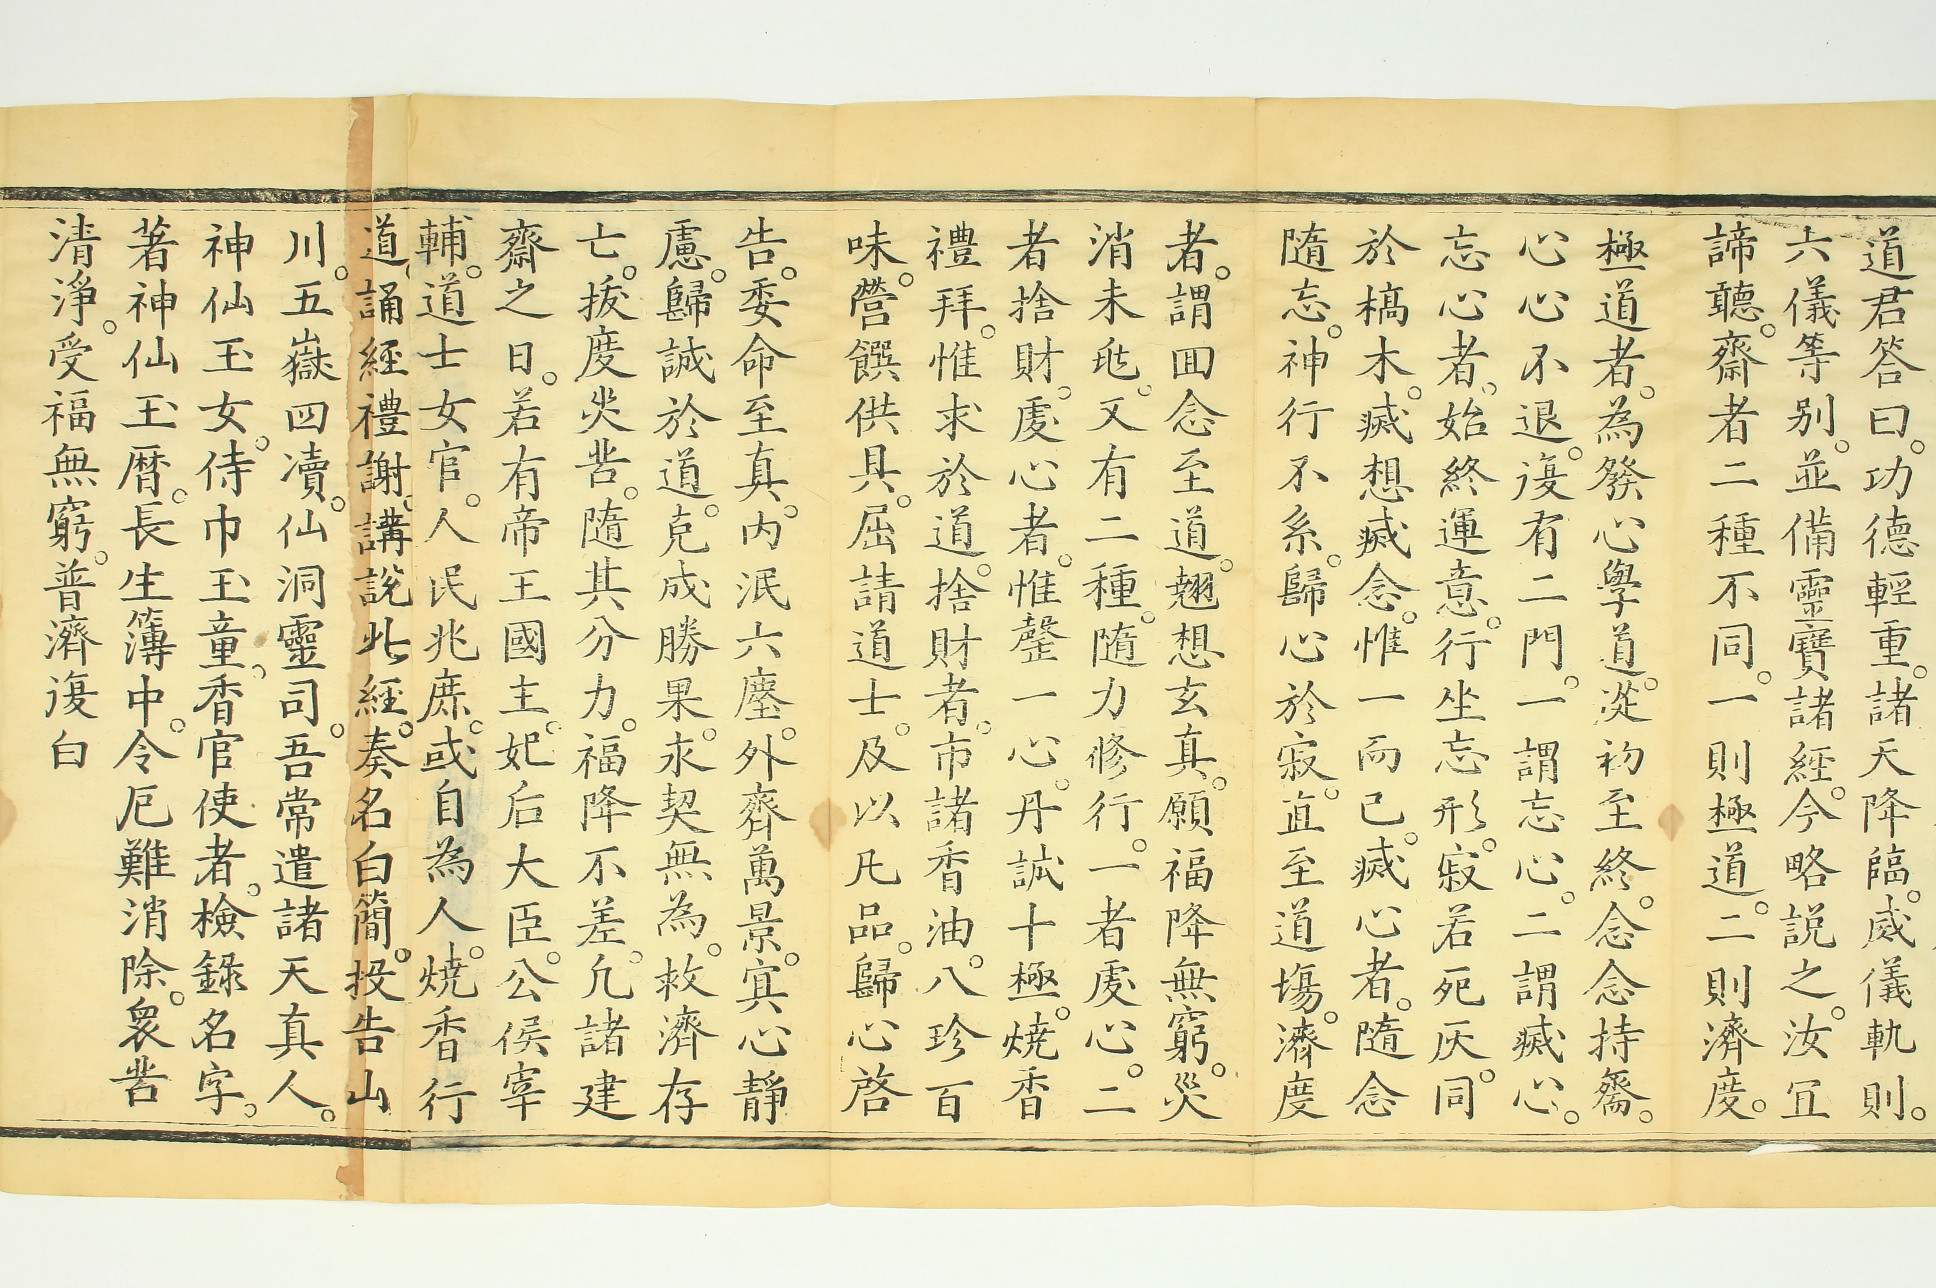 道君答曰。功德輕重。諸天降臨。威儀軌則。
六儀等別。並備靈寶諸經。今略説之。汝冝
諦聽。齋者二種不同。一則極道。二則濟度。
極道者。為發心學道。從初至終。念念持齋。
心心不退。復有二門。一謂忘心。二謂滅心。
忘心者。始終運意。行坐忘形。寂若死灰。同
於槁木。滅想滅念。惟一而已。滅心者。隨念
隨忘。神行不系。歸心於寂。直至道場。濟度
者。謂回念至道。翹想玄真。願福降無窮。災
消未兆。又有二種。隨力修行。一者處心。二
者捨財。處心者。惟罄一心。丹誠十極。燒香
禮拜。惟求於道。捨財者。市諸香油。八珍百
味。營饌供具。屈請道士。及以凡品。歸心啓
告。委命至真。内泯六塵。外齊萬景。冥心靜
慮。歸誠於道。克成勝果。求契無為。救濟存
亡。拔度災苦。隨其分力。福降不差。凢諸建
齋之日。若有帝王國主。妃后大臣。公侯宰
輔。道士女官。人民兆庶。或自為人。燒香行
道。誦經禮謝。講説此經。奏名白簡。投告山
川。五嶽四瀆。仙洞靈司。吾常遣諸天真人。
神仙玉女。侍巾玉童。香官使者。檢錄名字。
著神仙玉曆。長生簿中。令厄難消除。衆苦
清淨。受福無窮。普濟復白